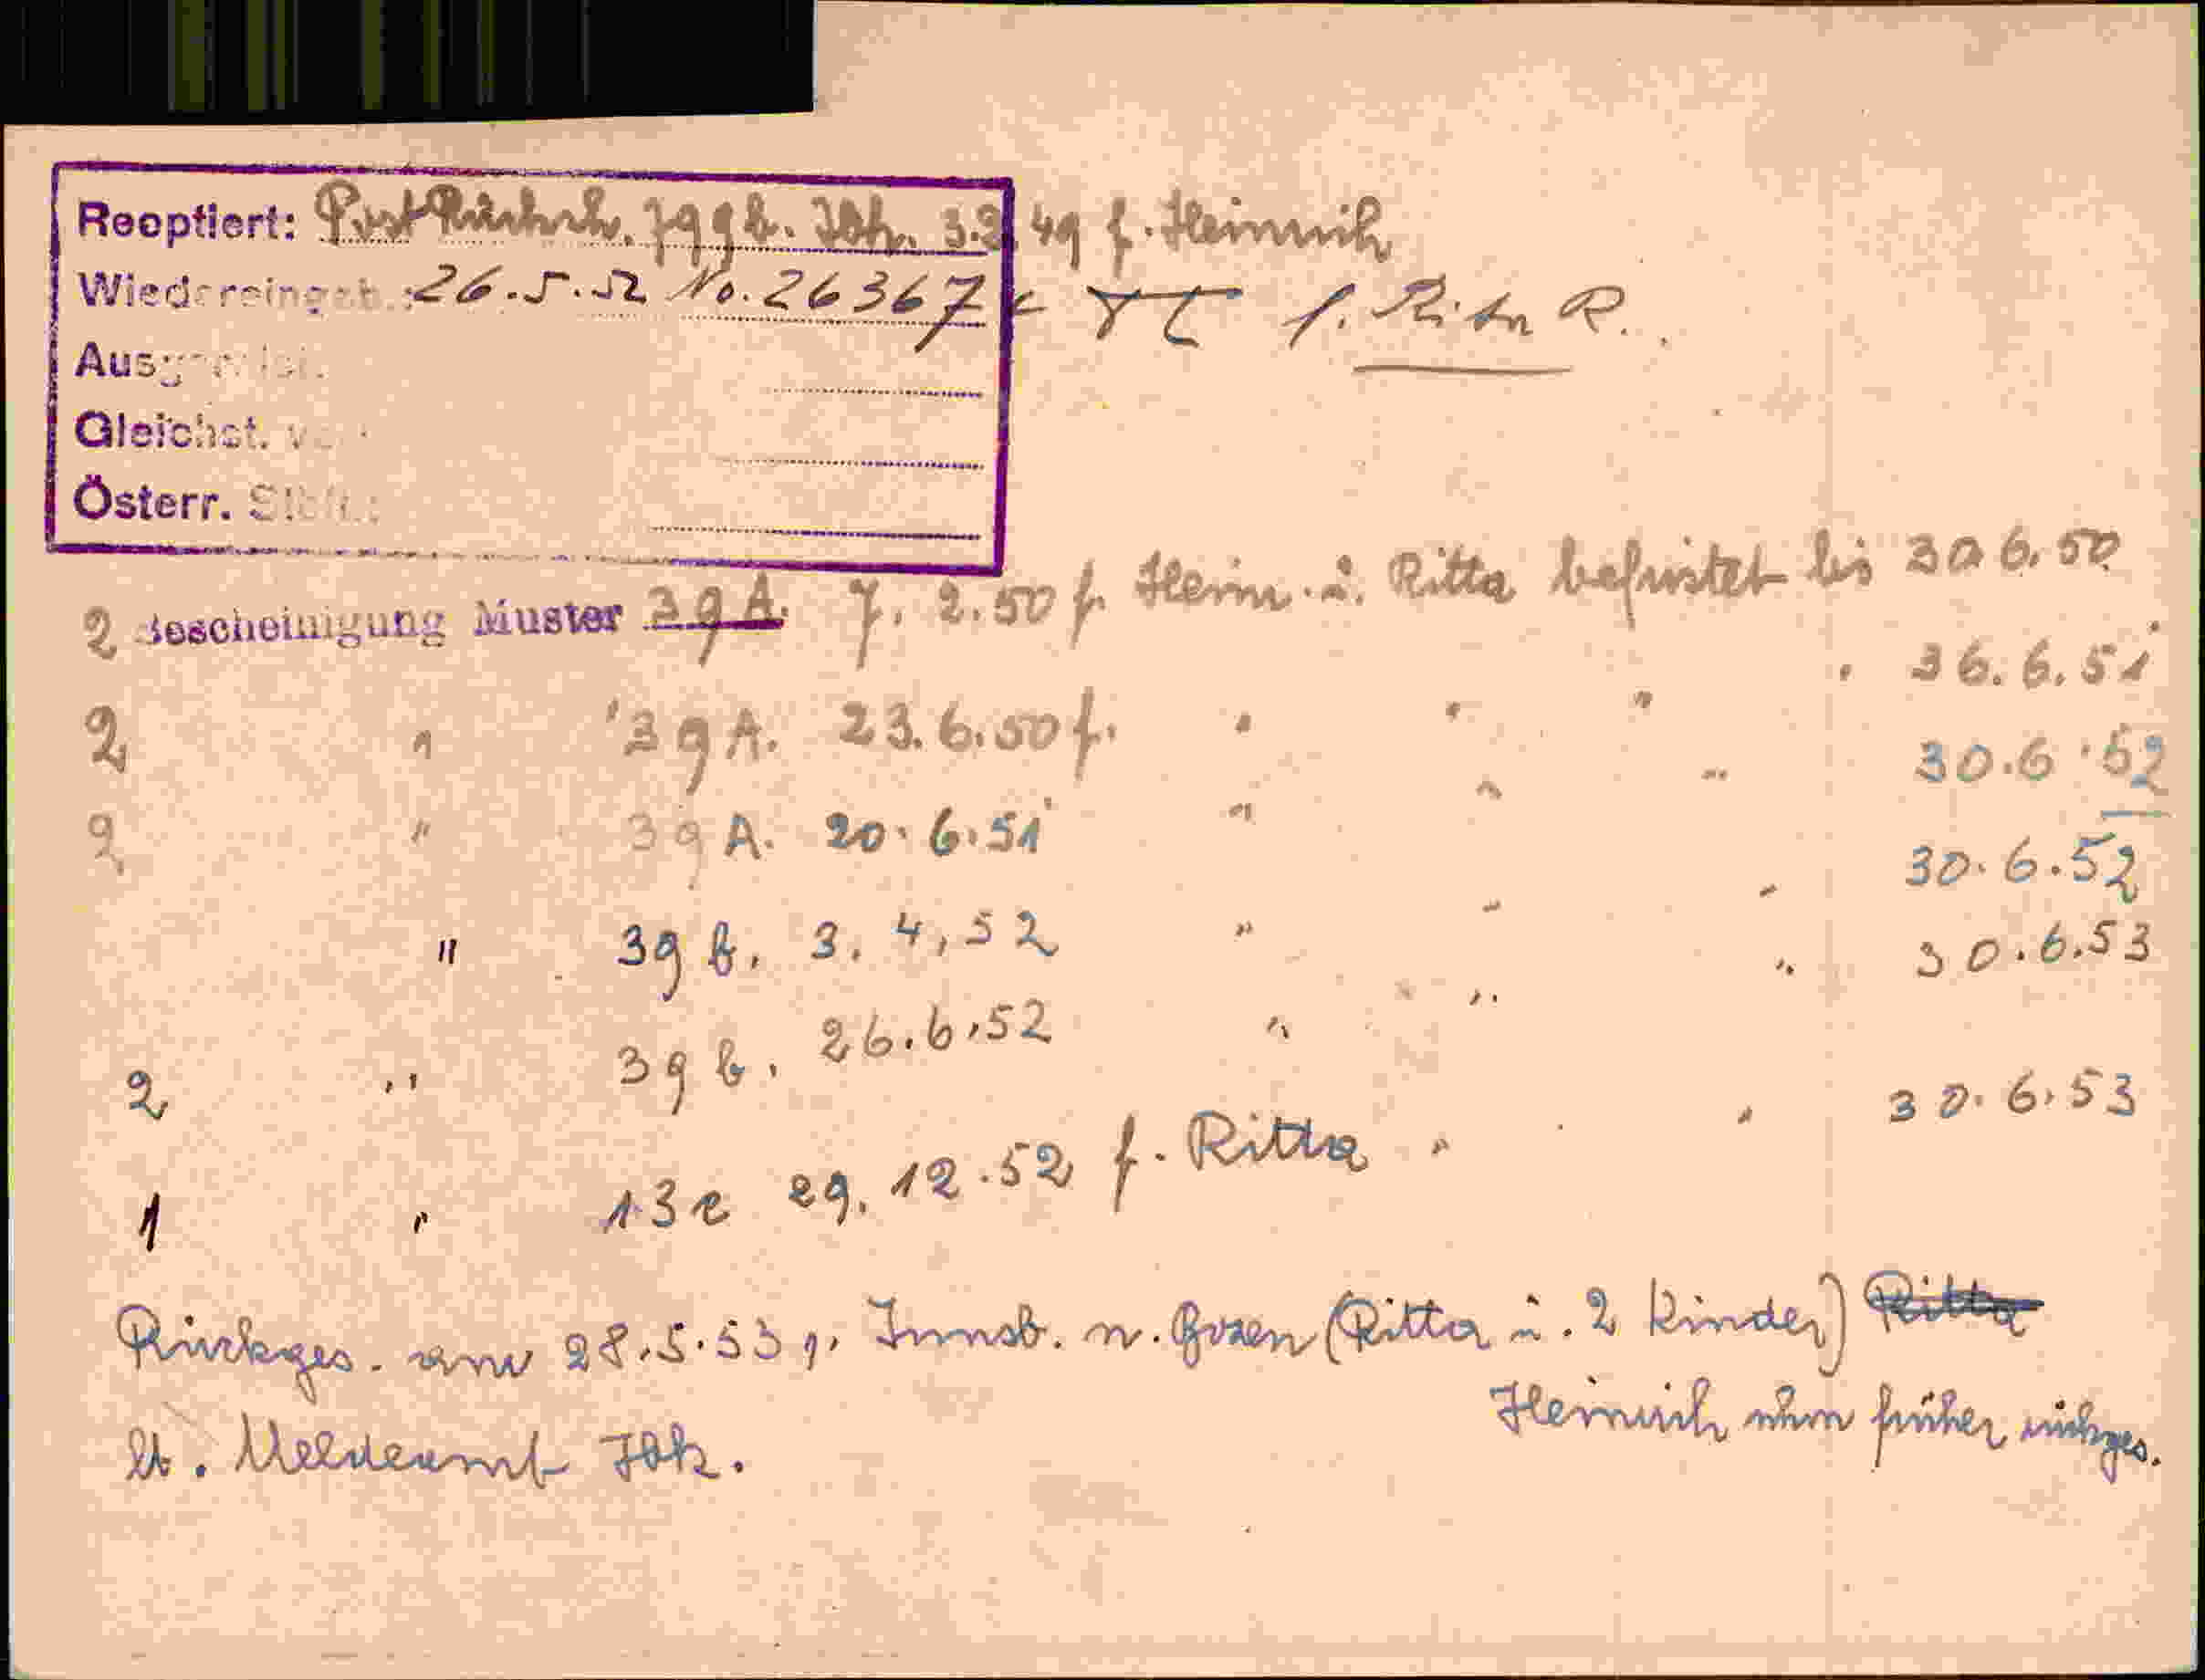 Reoptiert: Post Rücksch. Jggb. Ibk. 3.2.49 f. Heinrich
Wiedereingeb.: 26.5.52 No. 26367 f. Rita R.
Ausgebürgert:
Gleichst. v.
Österr. Stbft.:
2 Bescheinigung Muster 39 A. 7. 2. 50 f. Heinr. u. Ritta befristet bis 30 6. 50
2 " 39 A. 23. 6. 50 f. " " " " 30. 6. 51
2 " 39 A. 20. 6. 51 " " " 30. 6. 52
" 39 b. 3. 4. 52 " " " 30. 6. 52
2 " 39 b. 26. 6. 52 " " " 30. 6. 53
1 " 13e 29. 12. 52 f. Ritta " " 30. 6. 53
Rückges. am 28. 5. 53 v. Innsb. n. Bozen (Ritta u. 2 Kinder) Ritta
Heinrich schon früher rückges.
lt. Meldeamt Ibk.